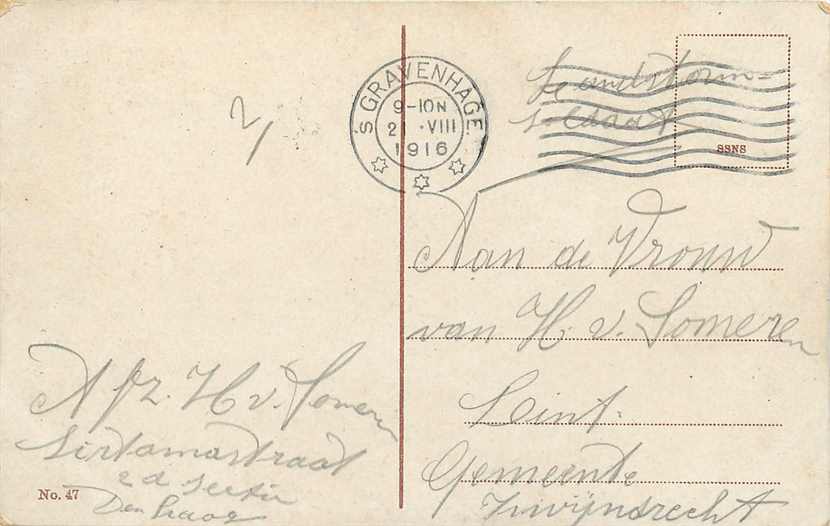 'S GRAVENHAGE
9-10N
21 · VIII
1916
Landstorm-
soldaat
SSNS
2/
Aan de Vrouw
van H. v. Someren
Lint.
Gemeente
Zwijndrecht
Afz. H v. Someren
Sirtemastraat
2d sectie
Den Haag
No. 47